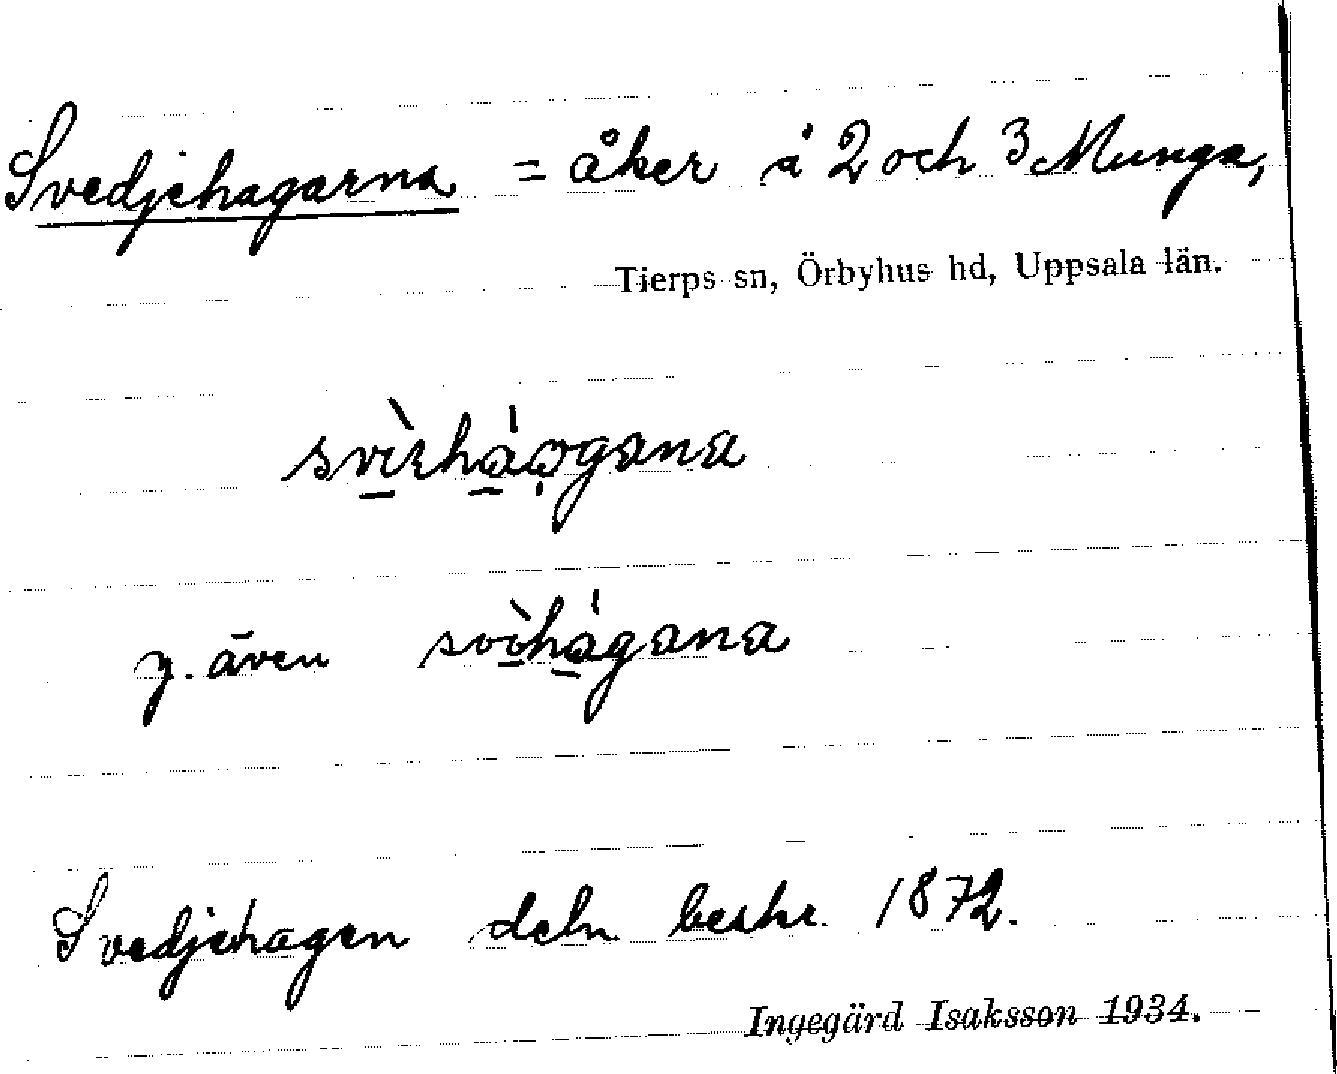 Svedjehagarna = åker å 2 och 3 Munga,
Tierps sn, Örbyhus hd, Uppsala län.
y. även
Svedjehagen deln beskr. 1872.
Ingegärd Isaksson 1934.